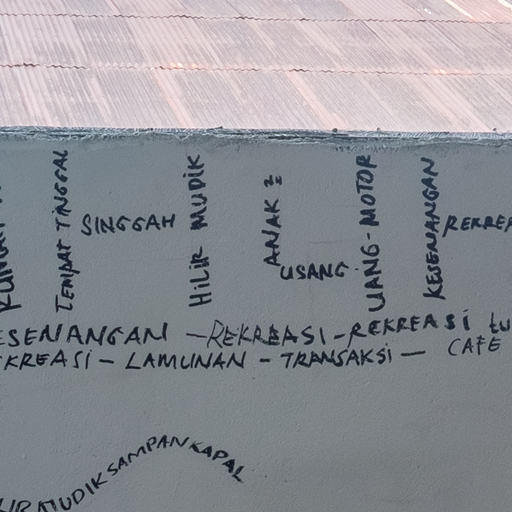 TEMPAT TINGGAL
SINGGAH
HILIR MUDIK
ANAK2
USANG
UANG-MOTOR
KESENANGAN
REKREA
ESENANGAN - REKREASI - REKREASI
KREASI - LAMUNAN - TRANSAKSI - CAFE
MUDIK SAMPAN KAPAL